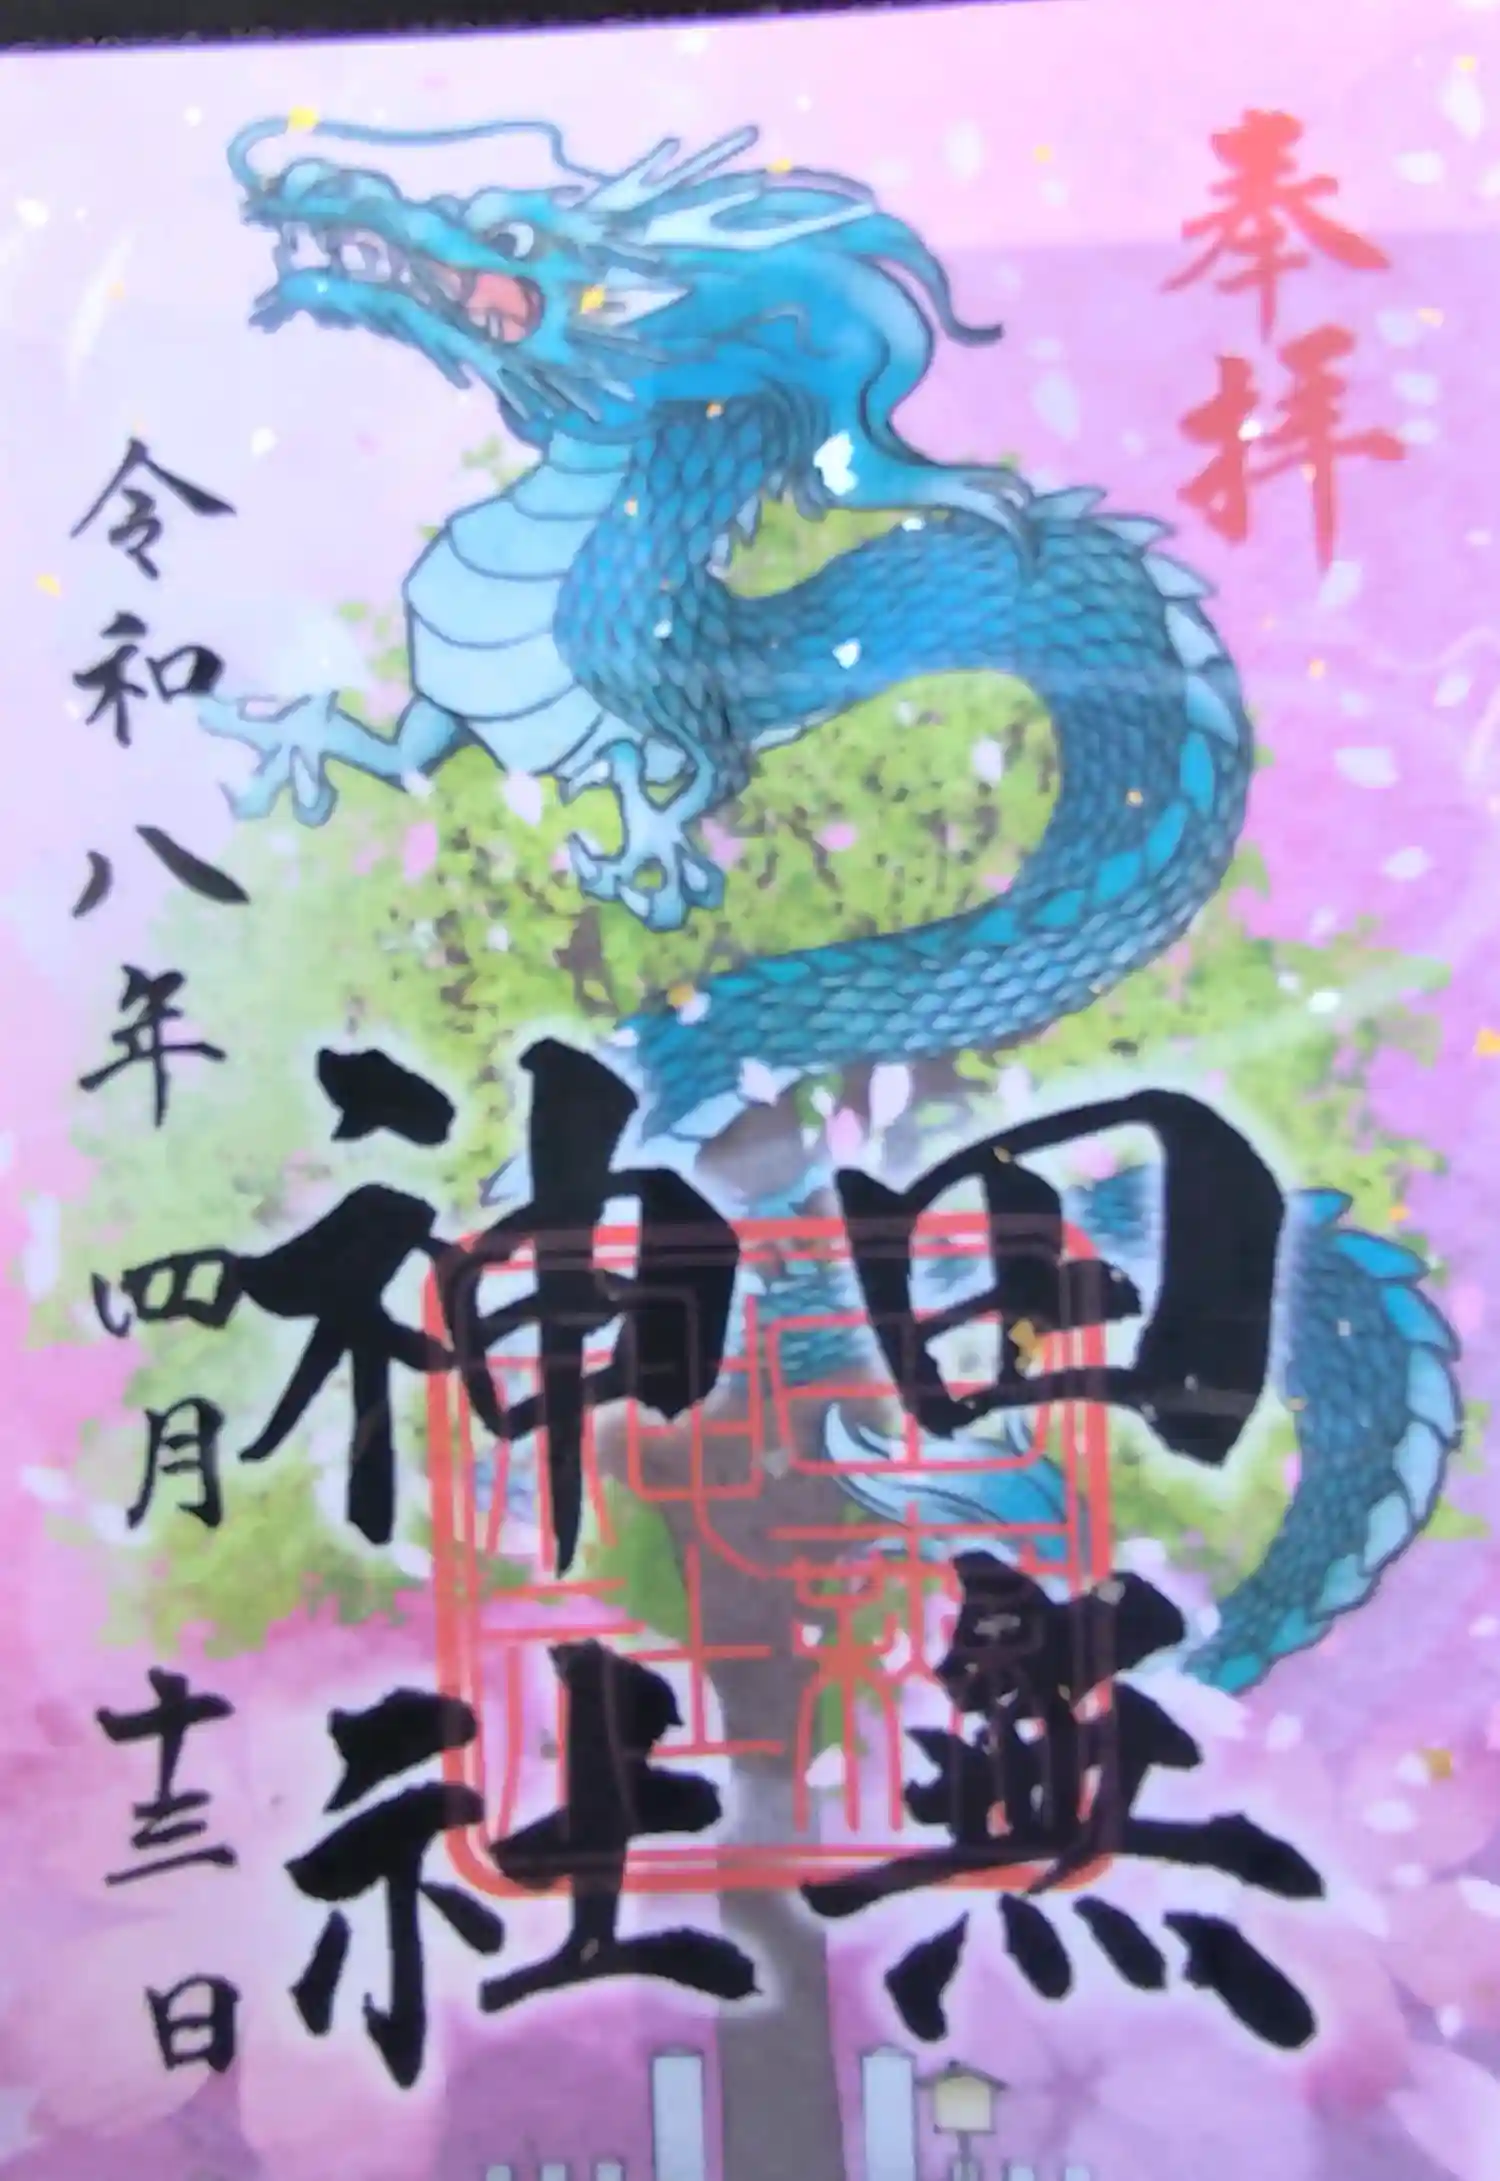 奉拝
田無
神社
令和八年四月十三日